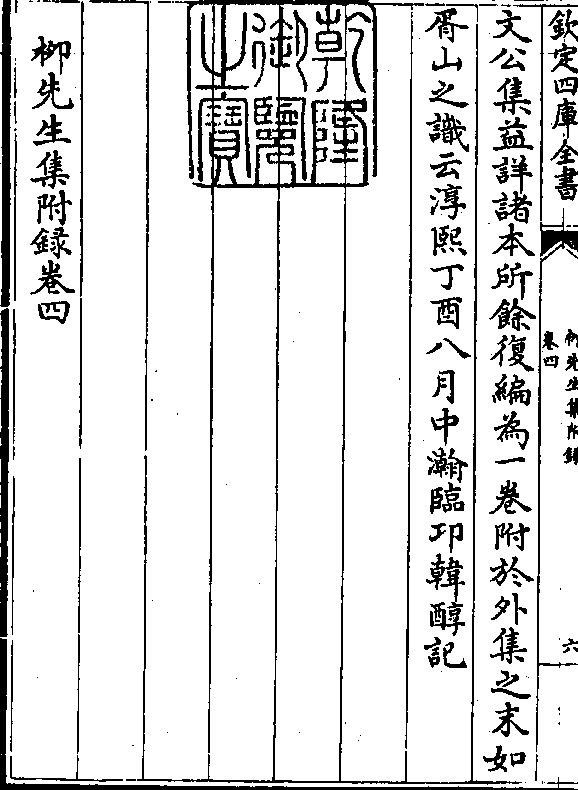 欽定四庫全書
柳先生集附錄
卷四
六
文公集益詳諸本所餘復編為一卷附於外集之末如
胥山之識云淳熙丁酉八月中澣臨邛韓醇記
乾隆
御覽
之寶
柳先生集附録卷四